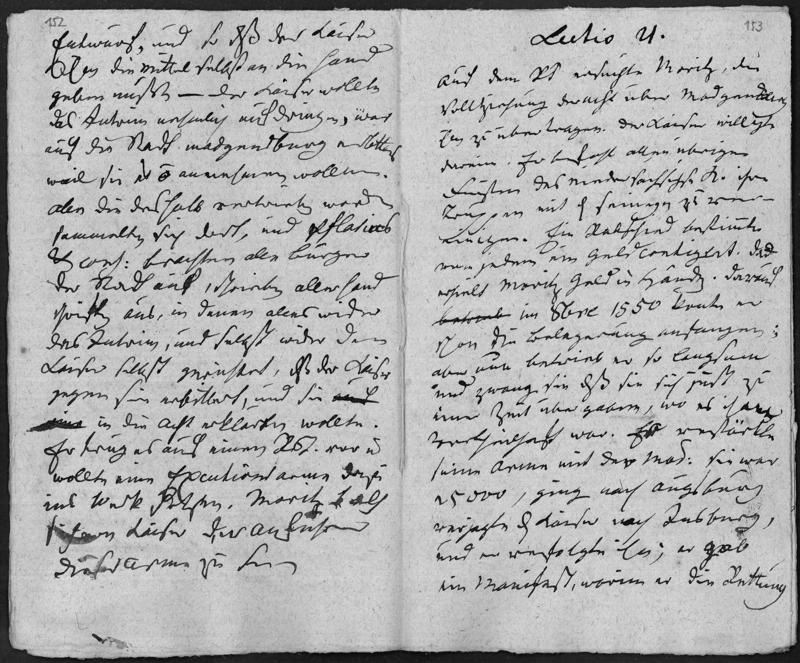 152
Entwurf, und so daß der Kaiser
ihm die Mittel selbst an die Hand
geben mußte — der Kaiser wollte
das Interim neulich aufdringen, war
auf die Stadt Magdenburg erbittert
weil sie es annehmen wollten.
alle die deshalb vertrieben worden
sammelten sich dort, und Flacius
& cons: brachten alle Bürger
der Stadt auf, schrieben allerhand
Schriften aus, in denen alles wider
das Interim, und selbst wider den
Kaiser selbst geäußert, daß der Kaiser
gegen sie erbittert, und sie
in die Acht erklären wollte.
Er trug es auf einen RT. vor u
wollte eine Executions arme
ins Werk setzen. Moritz
vom Kaiser der anführer
dieser Arme zu seyn
153
Lectio 21.
Auf dem RT ersuchte Moritz, die
Vollziehung der acht über Magdenburg
ihm zu übertragen. der Kaiser willigte
darein. Er befahl allen übrigen
Fürsten des niedersächsischen K. ihre
Truppen mit seinigen zu ver-
einigen. Ein Reichsschied bestimmte
von jedem ein Geldcontigent. das
erhielt Moritz Geld in Händen. darauf
im 8bre 1550 konte er
schon die Belegerung anfangen;
aber nun betrieb er so langsam
und zwang sie daß sie sich just zu
einer Zeit übergaben, wo es ihm
vortheilhaft war. Er verstärkte
seine Arme mit der Mag: sie war
25000, ging nach Augsburg
verjagte den Kaiser nach Insburg,
und er verfolgte ihn; er gab
ein Manifest, worin er die Rettung